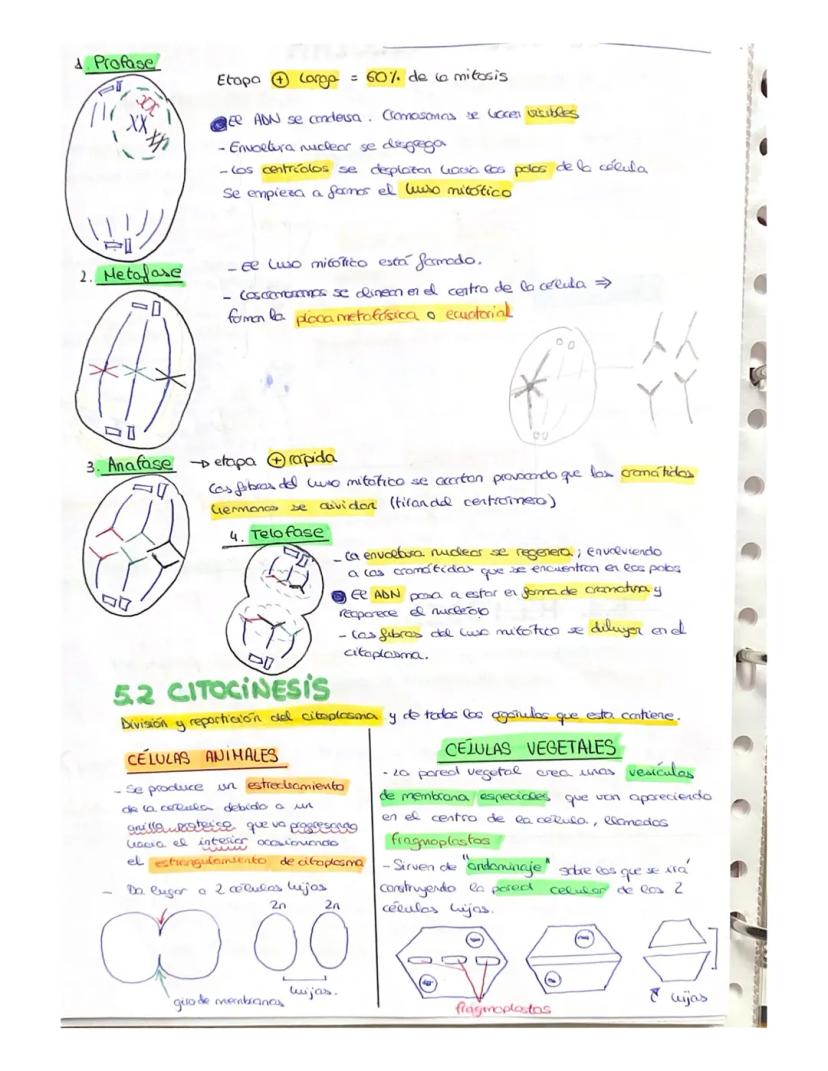 1. Profase
Etapa ⊕ larga = 60% de la mitosis
El ADN se condensa. Cromosomas se hacen visibles
- Envoltura nuclear se disgrega
- Los centríolos se desplazan hacia los polos de la célula
Se empieza a formar el huso mitótico
2. Metafase
- El huso mitótico está formado.
- Los cromosomas se alinean en el centro de la célula ⇒
forman la placa metafásica o ecuatorial
3. Anafase → etapa ⊕ rápida
Las fibras del huso mitótico se acortan provocando que las cromátidas
hermanas se dividan (tiran del centrómero)
4. Telofase
- La envoltura nuclear se regenera; envolviendo
a las cromátidas que se encuentran en los polos
El ADN pasa a estar en forma de cromatina y
reaparece el nucléolo
- Las fibras del huso mitótico se diluyen en el
citoplasma.
5.2 CITOCINESIS
División y repartición del citoplasma y de todos los orgánulos que esta contiene.
CÉLULAS ANIMALES
- Se produce un estrechamiento
de la célula debido a un
anillo proteico que va progresando
hacia el interior ocasionando
el estrangulamiento de citoplasma
- Da lugar a 2 células hijas
2n 2n
hijas.
giro de membranas
CÉLULAS VEGETALES
- La pared vegetal crea unas vesículas
de membrana especiales que van apareciendo
en el centro de la célula, llamados
fragmoplastos
- Sirven de "andamiaje" sobre los que se irá
construyendo la pared celular de las 2
células hijas.
fragmoplastos
hijas